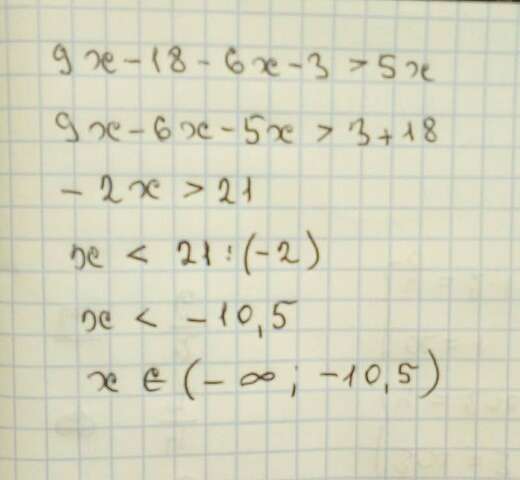 9x-18-6x-3 > 5x
9x-6x-5x > 3+18
-2x > 21
x < 21:(-2)
x < -10,5
x ∈ (-∞; -10,5)